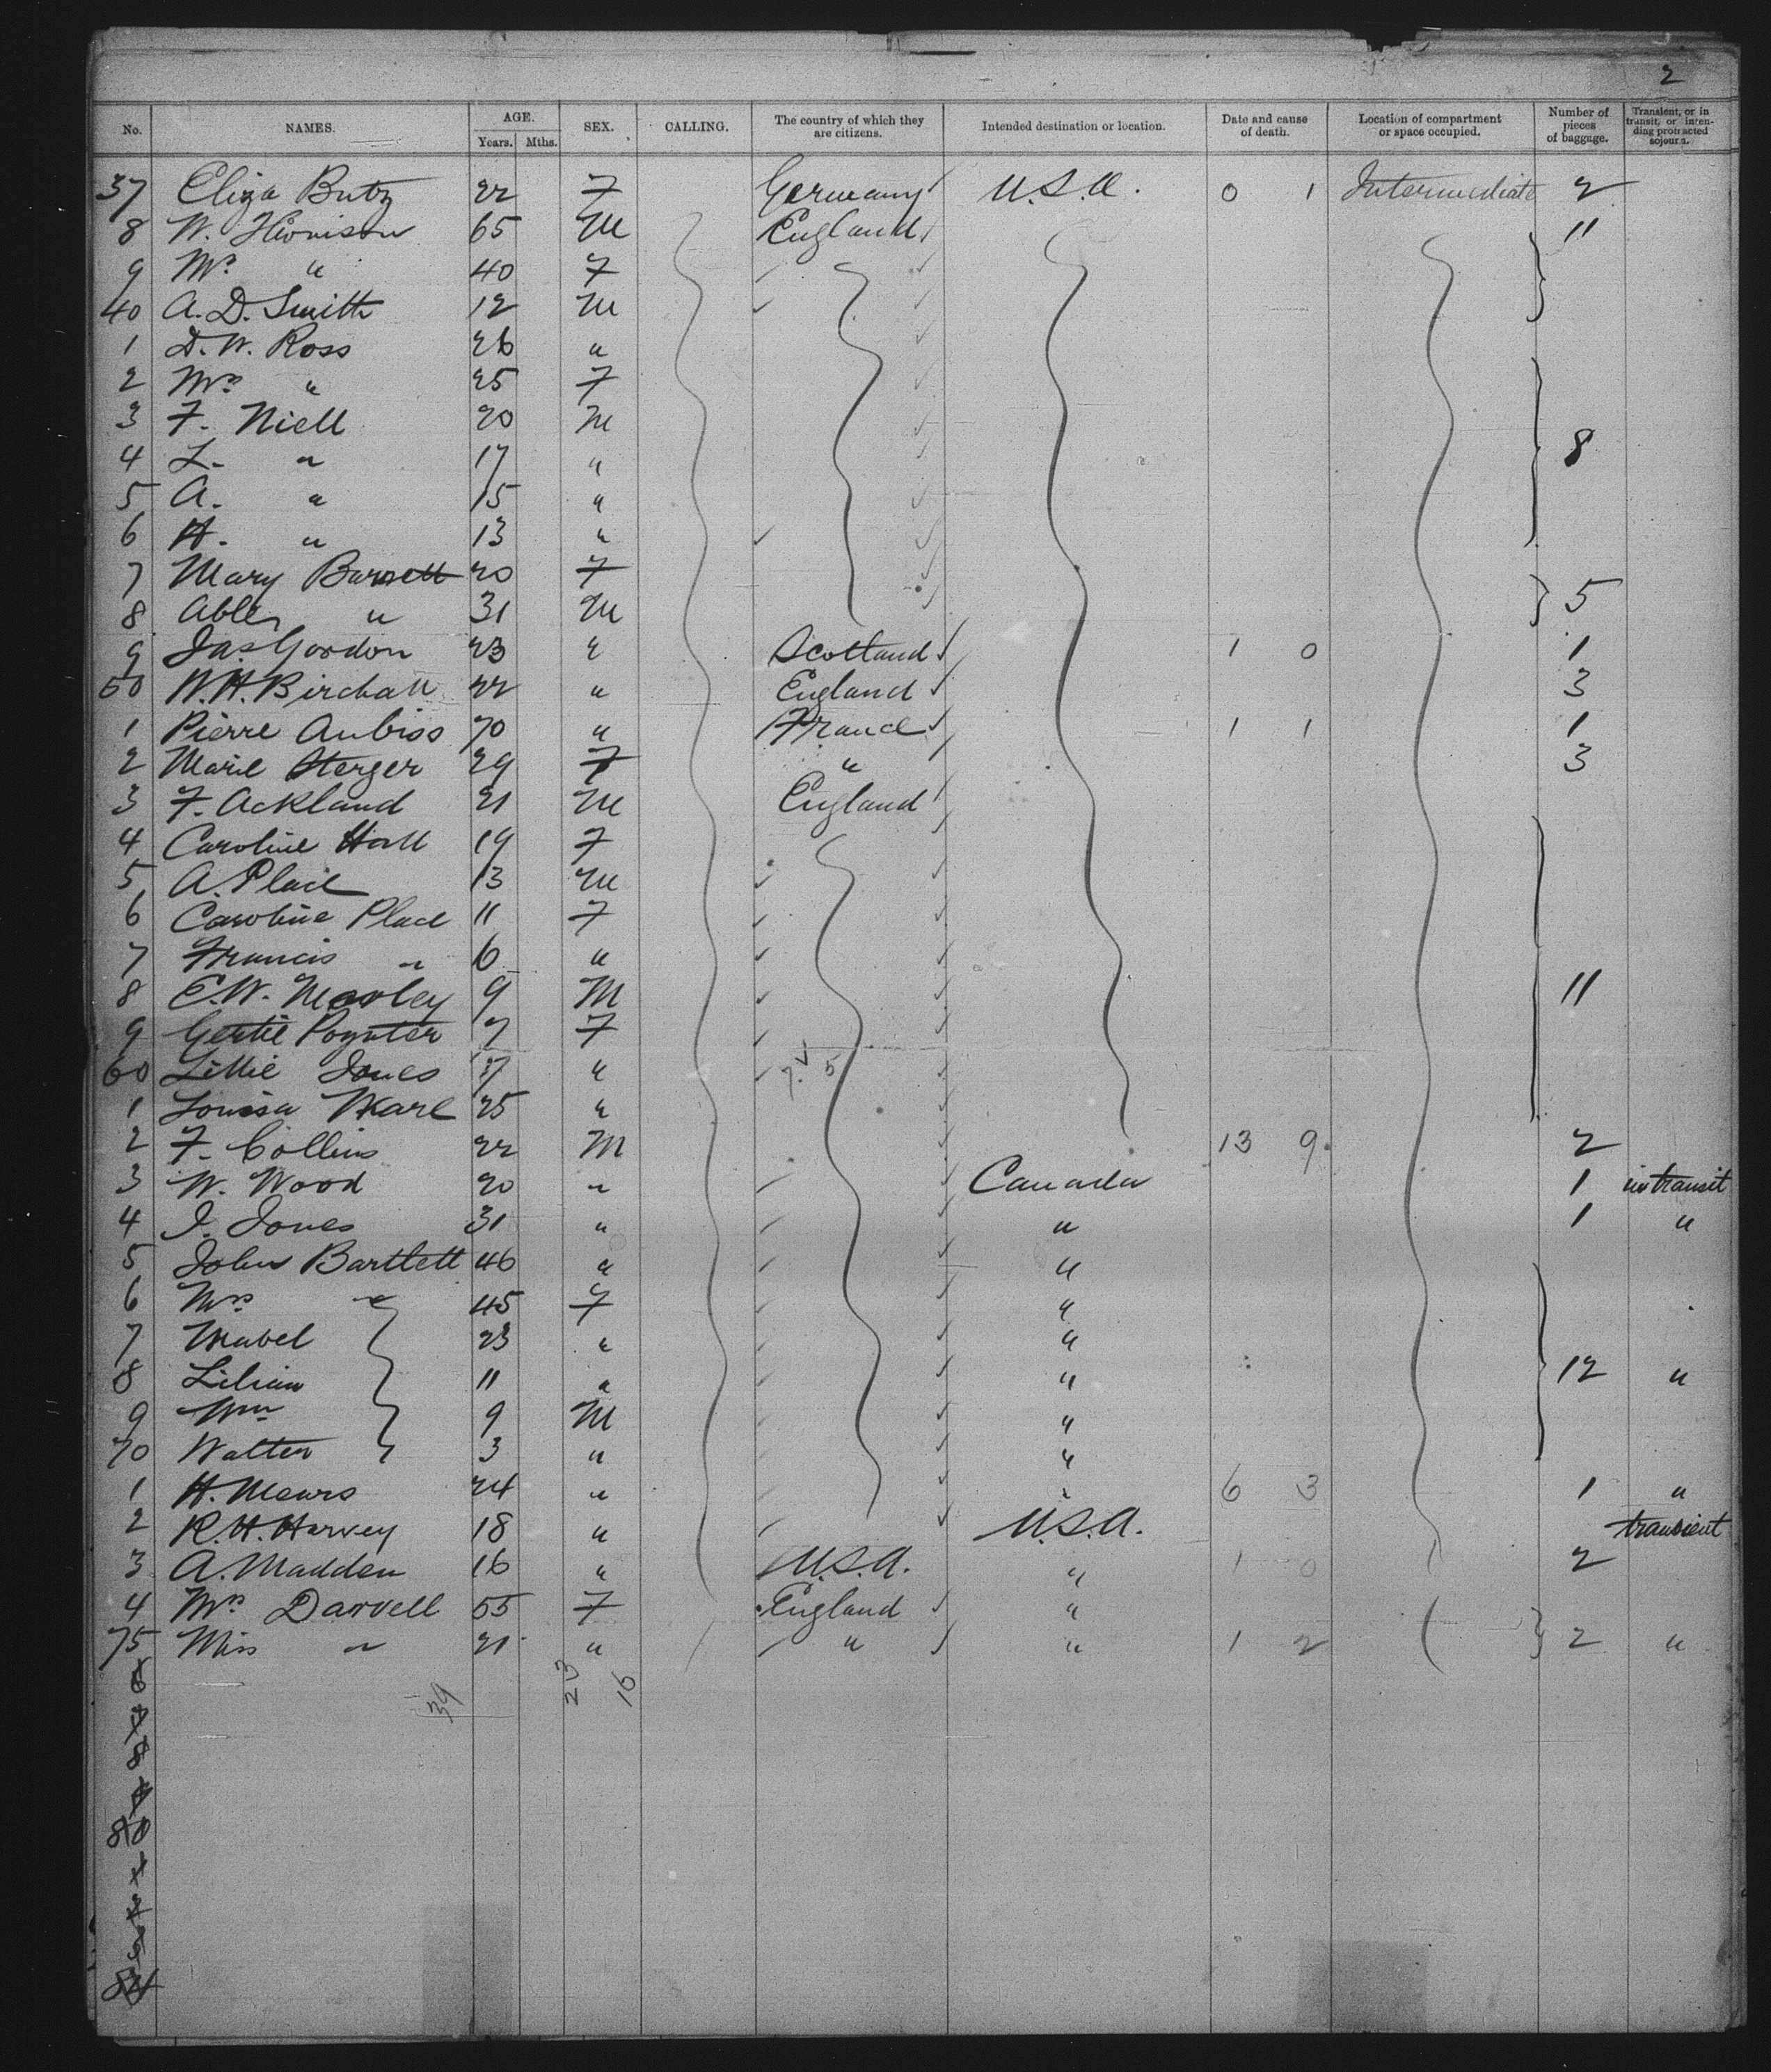 2
No. NAMES. AGE. Years. Mths. SEX. CALLING. The country of which they are citizens. Intended destination or location. Date and cause of death. Location of compartment or space occupied. Number of pieces of baggage. Transient, or in transit, or intending protracted sojourn.
37 Eliza Butz 22 F Germany U.S.A. 0 1 Intermediate 2
8 W. 65 M England 11
9 Mrs " 40 F
40 A. D. Smith 12 M
1 D. W. Ross 26 "
2 Mrs " 25 F
3 F. Niell 20 M
4 L. " 17 " 8
5 A. " 15 "
6 H. " 13 "
7 Mary Barnett 20 F
8 " 31 M 5
9 Jas. Gordon 23 " Scotland 1 0 1
50 W. H. Birchall 22 " England 3
1 Pierre Aubiso 70 " France 1 1 1
2 Marie Sterger 29 F " 3
3 F. Ackland 21 M England
4 Caroline Hall 19 F
5 A. Place 13 M
6 Caroline Place 11 F
7 Francis " 6 "
8 E. W. Morley 9 M 11
9 Gertie Poynter 7 F
60 Lillie Jones 37 " 5
1 Louisa 25 "
2 F. Collins 22 M 13 9 2
3 W. Wood 20 " Canada 1 in transit
4 J. Jones 31 " " 1 "
5 John Bartlett 46 " "
6 Mrs " 45 F "
7 Mabel 23 " "
8 Lilian 11 " " 12 "
9 Wm 9 M "
70 Walter 3 " "
1 H. Mears 24 " " 6 3 1 "
2 R. H. Harvey 18 " U.S.A. transient
3 A. Madden 16 " U.S.A. " 1 0 2
4 Mrs Darvell 55 F England "
75 Miss " 21 " " " 1 2 2 "
6
39 23 16
7
8
9
80
1
2
3
84